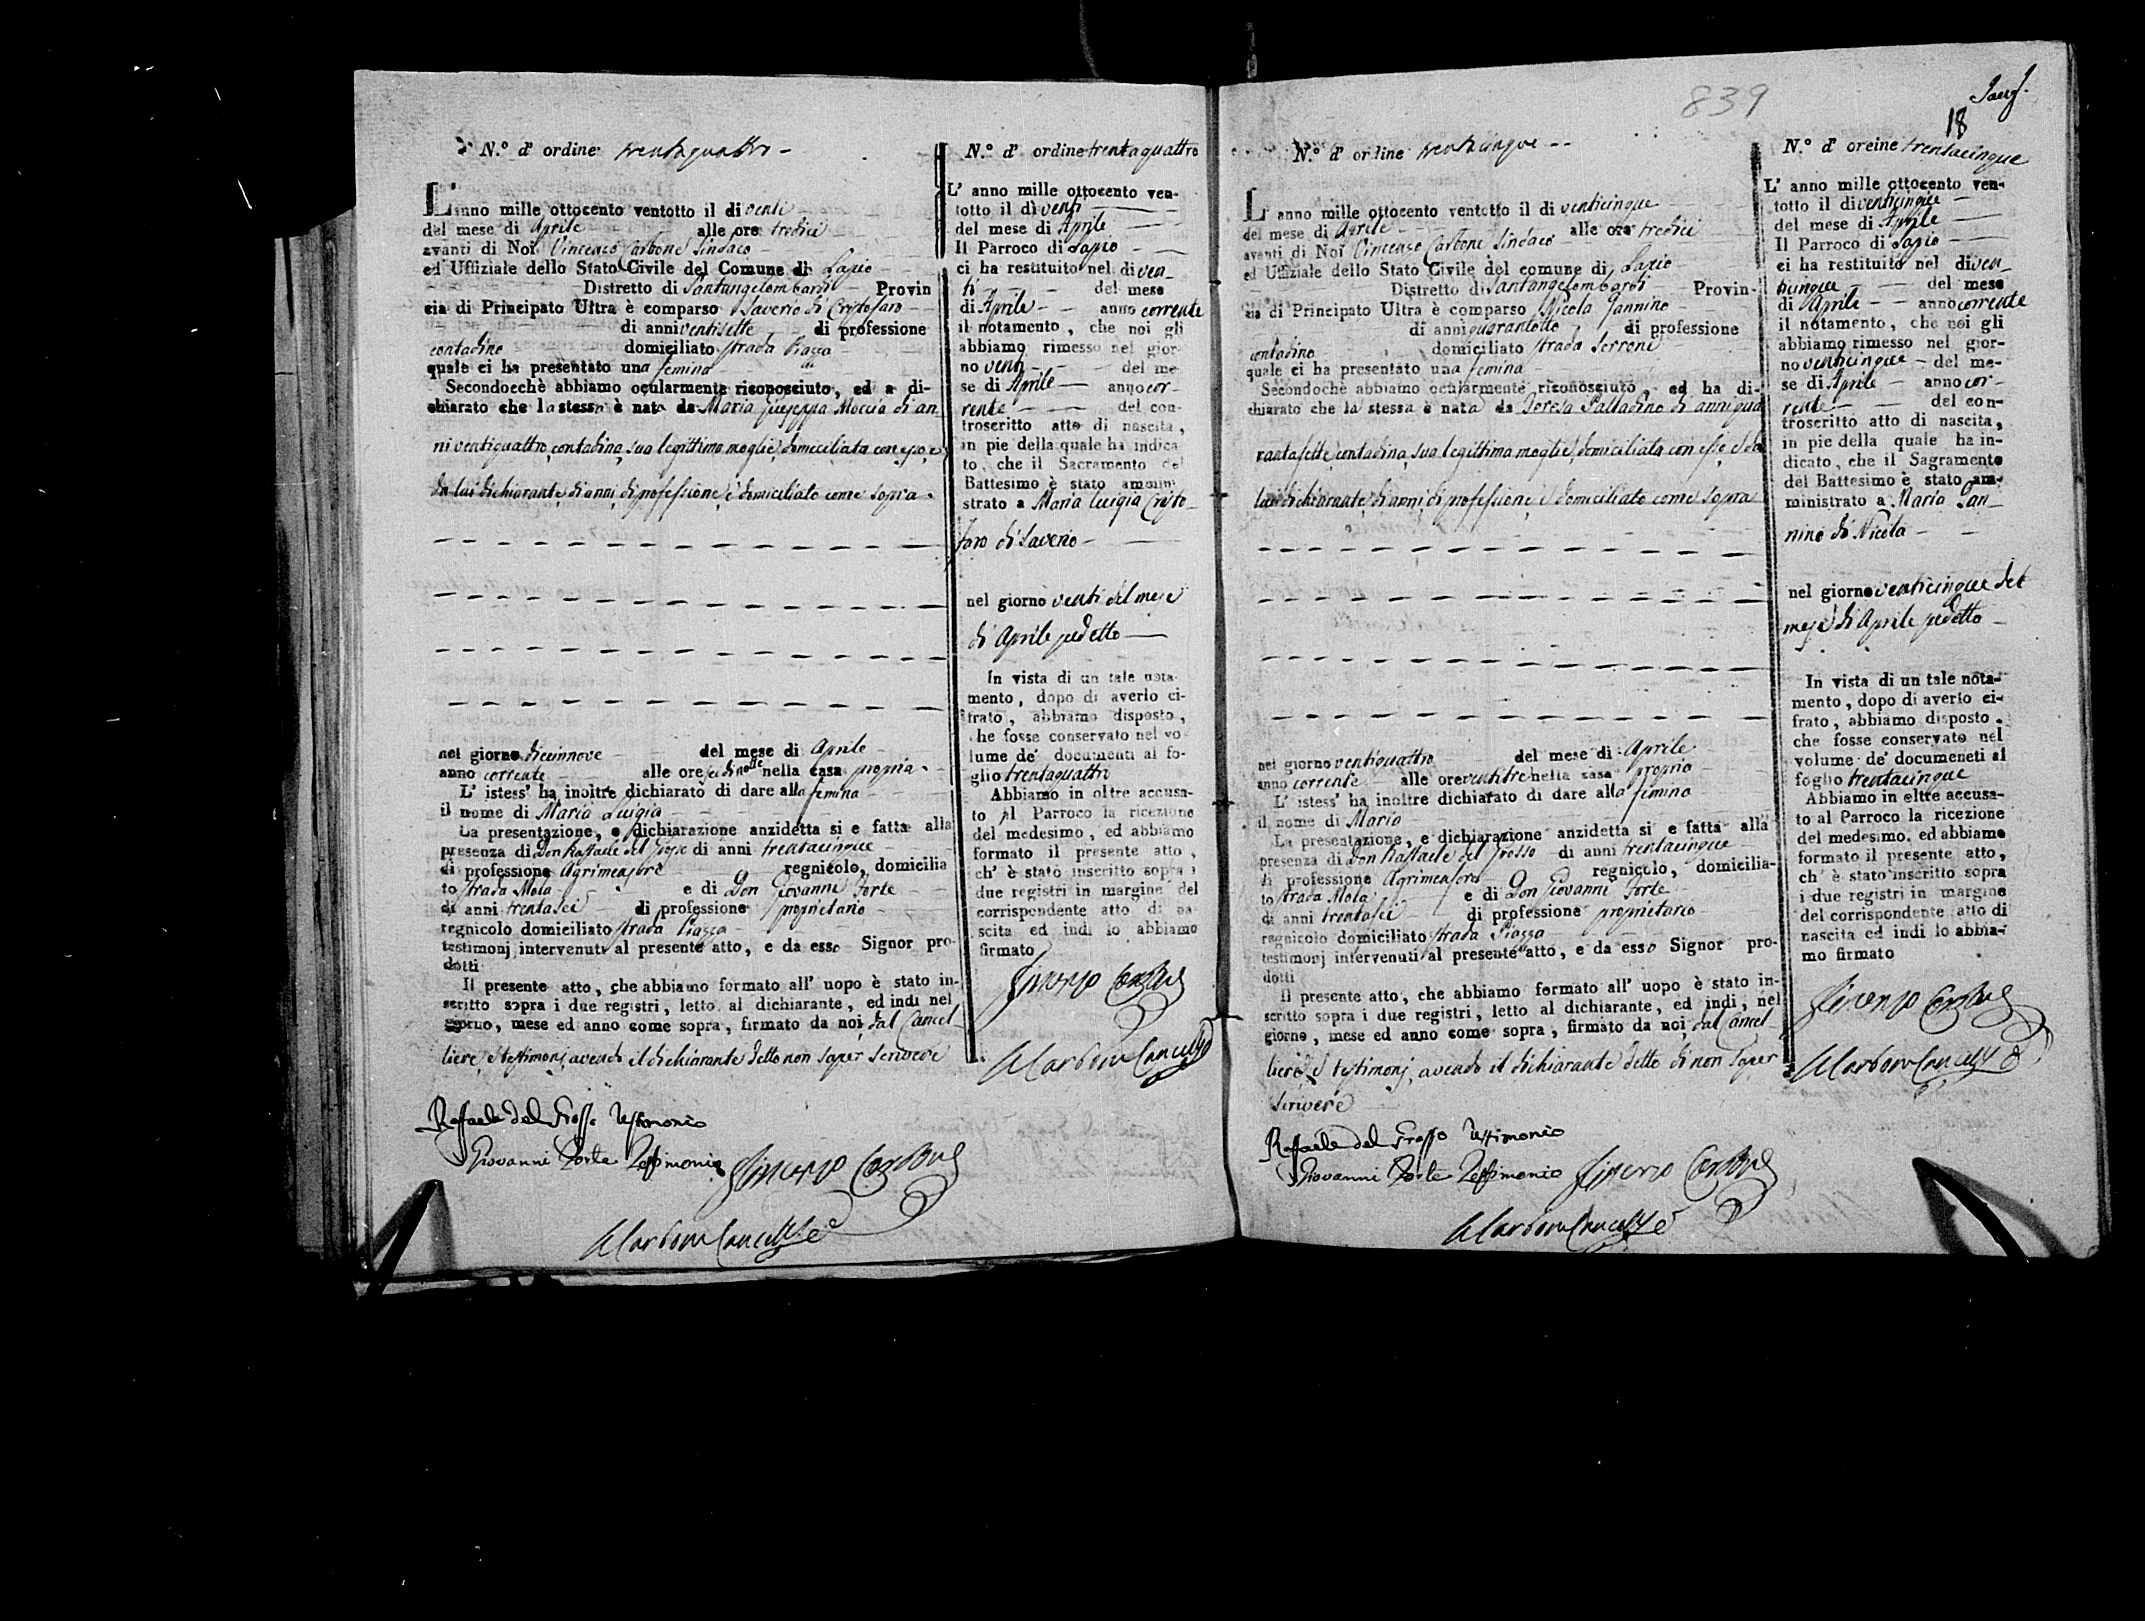 N.° d' ordine trentaquattro
L' anno mille ottocento ventotto il di venti
del mese di Aprile alle ore tredici
avanti di Noi Vincenzo Carbone Sindaco
ed Uffiziale dello Stato Civile del Comune di Lapio
Distretto di Santangelombardi Provin
cia di Principato Ultra è comparso Saverio di Cristofaro
di anni ventisette di professione
contadino domiciliato strada Piazza
quale ci ha presentato una femina
Secondocchè abbiamo ocularmente riconosciuto, ed a di-
chiarato che la stessa è nata da Maria Giuseppa Moccia di an
ni ventiquattro, contadina, sua legittima moglie, domiciliata con esso, e
da lui dichiarante, di anni, di professione, e domiciliato come sopra.
nel giorno diecinnove del mese di Aprile
anno corrente alle ore sei di notte nella casa propria
L' istess' ha inoltre dichiarato di dare alla femina
il nome di Maria Luigia
La presentazione, e dichiarazione anzidetta si e fatta alla
presenza di Don Raffaele del Grosso di anni trentacinque
di professione Agrimensore regnicolo, domicilia
to strada Mola e di Don Giovanni Forte
di anni trentasei di professione proprietario
regnicolo domiciliato strada Piazza
testimonj intervenuti al presente atto, e da esso Signor pro-
dotti
Il presente atto, che abbiamo formato all' uopo è stato in-
scritto sopra i due registri, letto al dichiarante, ed indi nel
giorno, mese ed anno come sopra, firmato da noi, dal Cancel-
liere, e testimonj, avendo il dichiarante detto non saper scrivere
Raffaele del Grosso Testimonio
Giovanni Forte Testimonio Vincenzo Carbone
Carbone Cancelliere
N.° d' ordine trentaquattro
L' anno mille ottocento ven-
totto il di venti
del mese di Aprile
Il Parroco di Lapio
ci ha restituito nel di ven-
ti del mese
di Aprile anno corrente
il notamento, che noi gli
abbiamo rimesso nel gior-
no venti del me
se di Aprile anno cor-
rente del con-
troscritto atto di nascita,
in pie della quale ha indica
to, che il Sacramento del
Battesimo è stato ammin
strato a Maria Luigia Cristo-
faro di Saverio
nel giorno venti del mese
di Aprile sudetto
In vista di un tale nota-
mento, dopo di averlo ci-
frato, abbiamo disposto,
che fosse conservato nel vo
lume de' documenti al fo-
glio trentaquattro
Abbiamo in oltre accusa-
to al Parroco la ricezione
del medesimo, ed abbiamo
formato il presente atto,
ch' è stato inscritto sopra i
due registri in margine del
corrispondente atto di na
scita ed indi lo abbiamo
firmato
Vincenzo Carbone
Carbone Cancelliere
839
18
N.° d' ordine trentacinque
L' anno mille ottocento ventotto il di venticinque
del mese di Aprile alle ore tredici
avanti di Noi Vincenzo Carbone Sindaco
ed Uffiziale dello Stato Civile del comune di Lapio
Distretto di Santangelombardi Provin-
cia di Principato Ultra è comparso Nicola Jannino
di anni quarantotto di professione
contadino domiciliato strada Serrone
quale ci ha presentato una femina
Secondochè abbiamo ocularmente riconosciuto, ed ha di-
chiarato che la stessa è nata da Teresa Palladino di anni qua
rantasette, contadina, sua legittima moglie, domiciliata con esso, e da
lui dichiarante, di anni, di professione, e domiciliato come sopra
nel giorno ventiquattro del mese di Aprile
anno corrente alle ore ventitre nella casa propria
L' istess' ha inoltre dichiarato di dare alla femina
il nome di Maria
La presentazione, e dichiarazione anzidetta si e fatta alla
presenza di Don Raffaele del Grosso di anni trentacinque
di professione Agrimensore regnicolo, domicilia-
to strada Mola e di Don Giovanni Forte
di anni trentasei di professione proprietario
regnicolo domiciliato strada Piazza
testimonj intervenuti al presente atto, e da esso Signor pro-
dotti
Il presente atto, che abbiamo formato all' uopo è stato in-
scritto sopra i due registri, letto al dichiarante, ed indi, nel
giorno, mese ed anno come sopra, firmato da noi, dal Cancel-
liere, e testimonj, avendo il dichiarante detto di non saper
scrivere
Raffaele del Grosso Testimonio
Giovanni Forte Testimonio Vincenzo Carbone
Carbone Cancelliere
N.° d' oreine trentacinque
L' anno mille ottocento ven-
totto il di venticinque
del mese di Aprile
Il Parroco di Lapio
ci ha restituito nel di ven-
ticinque del mese
di Aprile anno corrente
il notamento, che noi gli
abbiamo rimesso nel gior-
no venticinque del me-
se di Aprile anno cor-
rente del con-
troscritto atto di nascita,
in pie della quale ha in-
dicato, che il Sagramento
del Battesimo è stato am-
ministrato a Maria Jan-
nino di Nicola
nel giorno venticinque del
mese di Aprile sudetto
In vista di un tale nota-
mento, dopo di averlo ci-
frato, abbiamo disposto.
che fosse conservato nel
volume de' documeneti al
foglio trentacinque
Abbiamo in oltre accusa-
to al Parroco la ricezione
del medesimo, ed abbiamo
formato il presente atto,
ch' è stato inscritto sopra
i due registri in margine
del corrispondente atto di
nascita ed indi lo abbia-
mo firmato
Vincenzo Carbone
Carbone Cancelliere